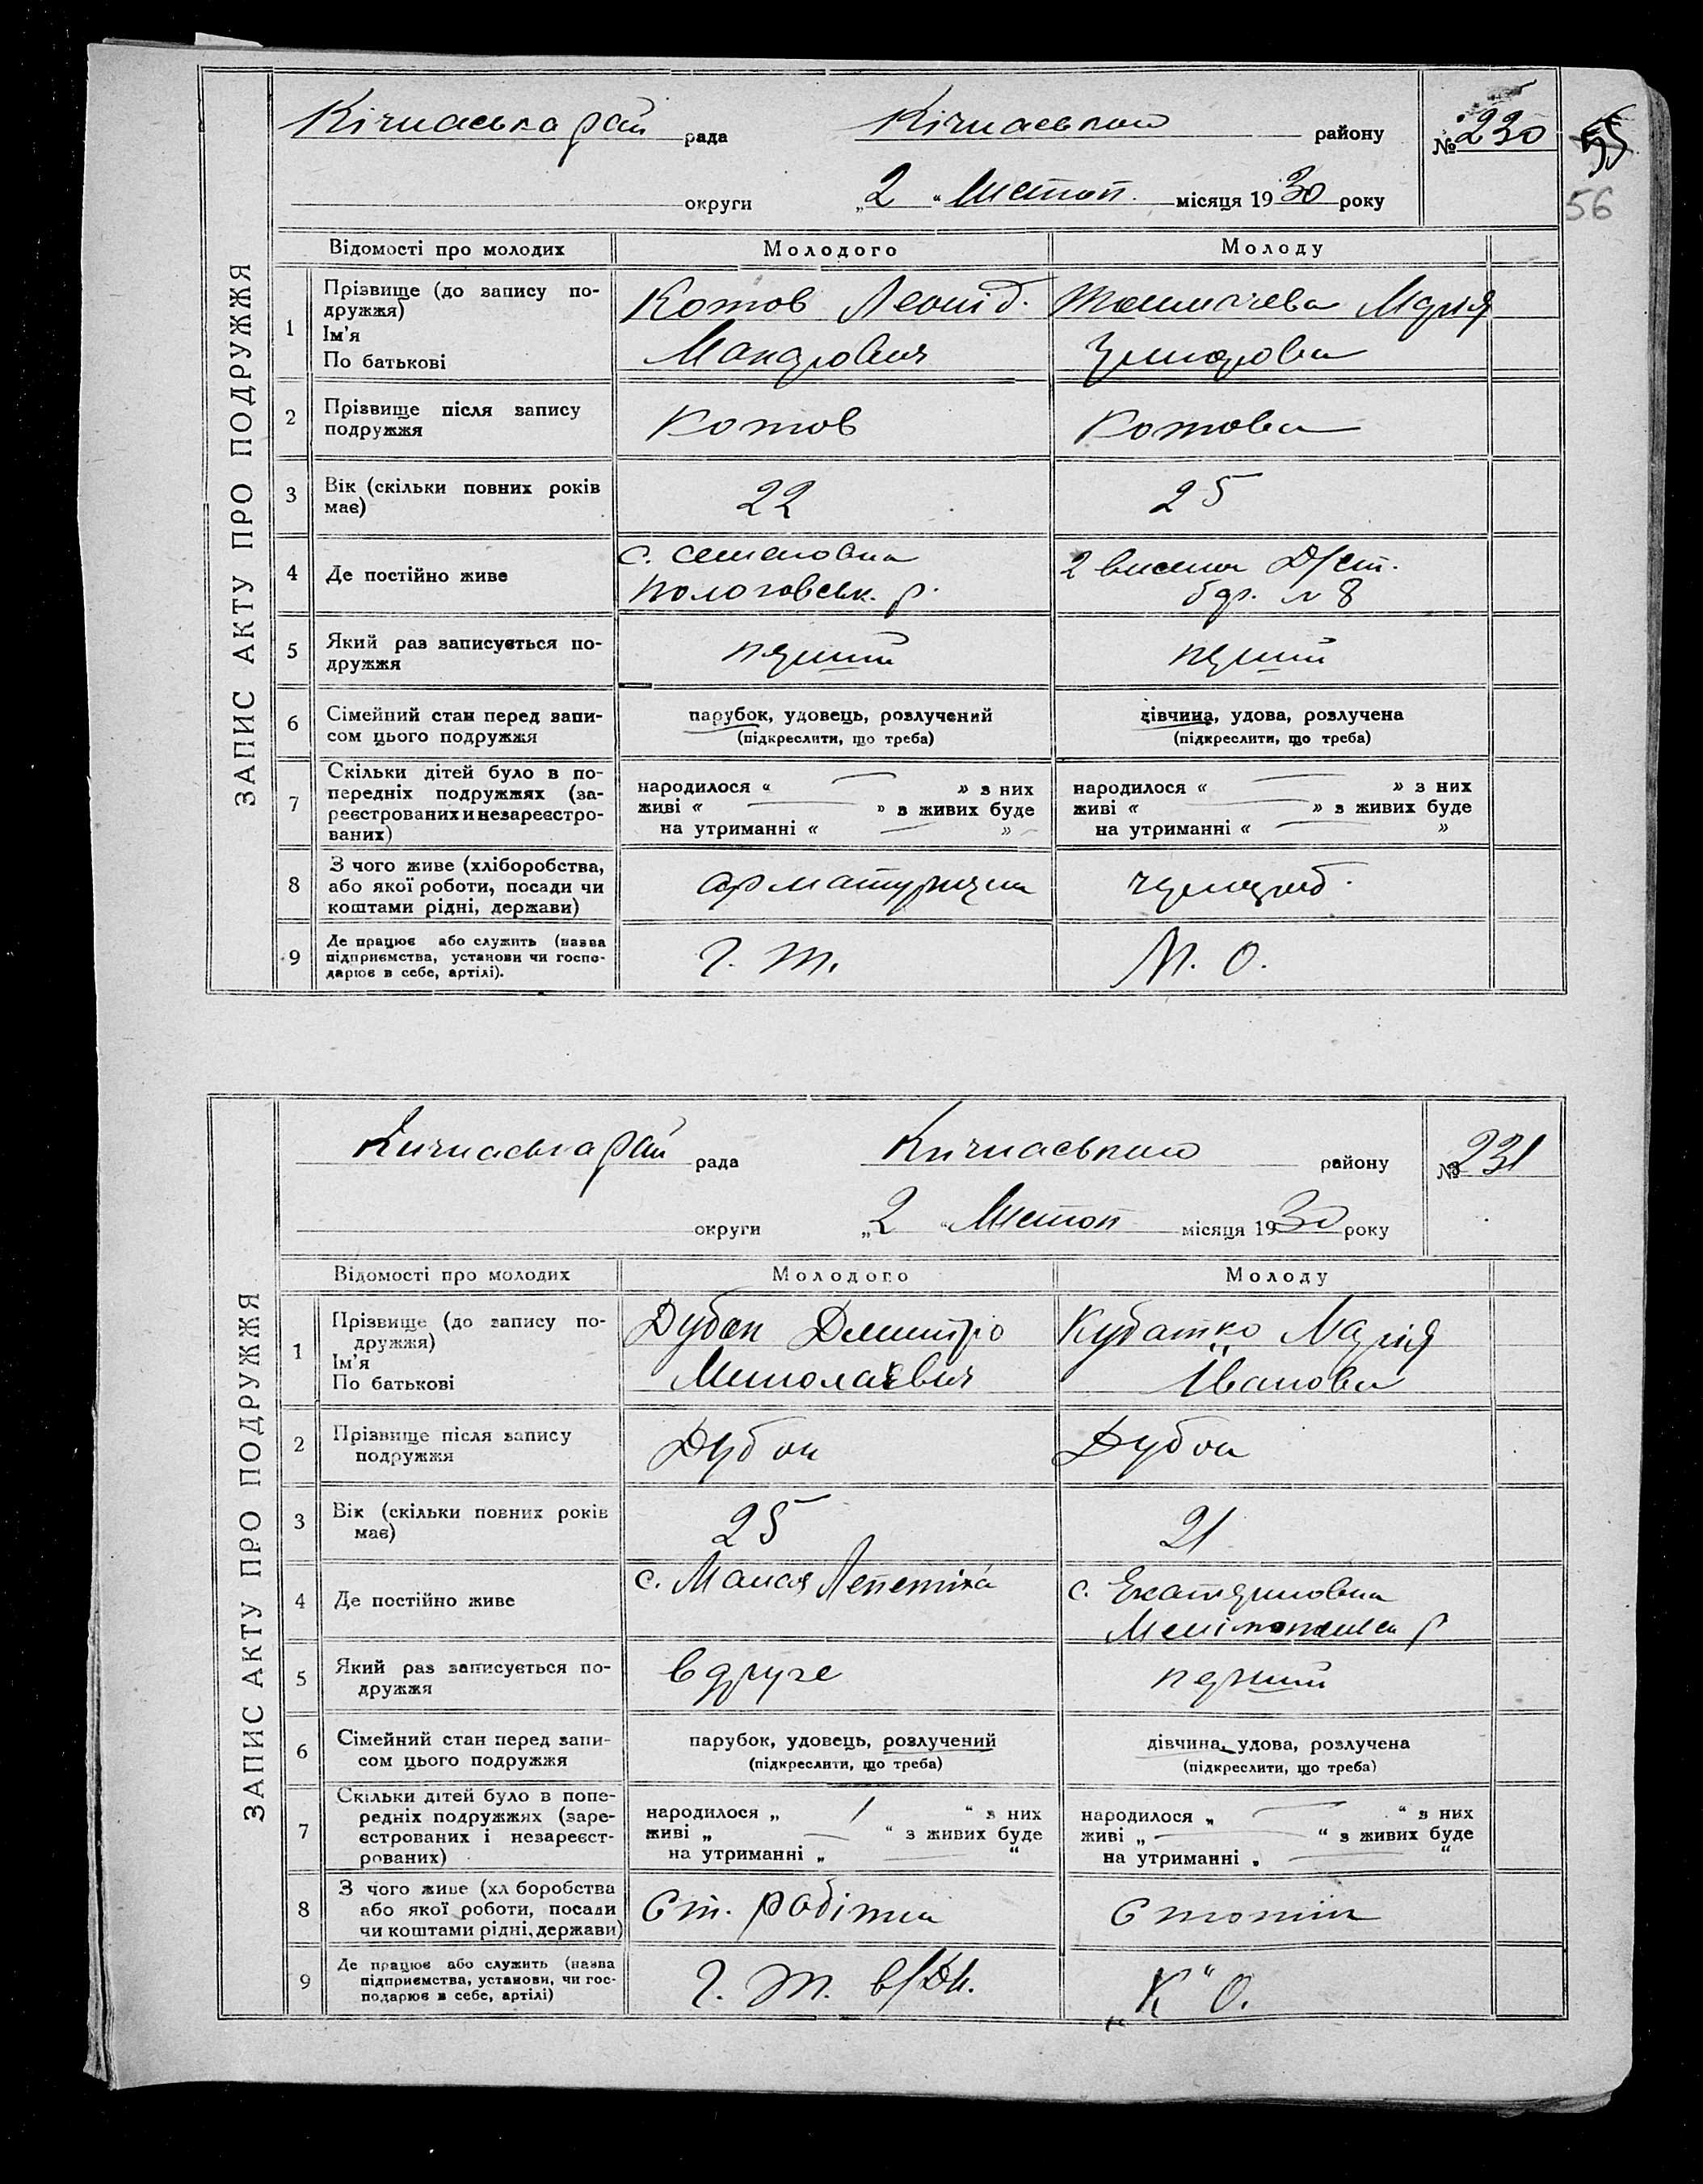 Кічкаська рай рада Кічкаського району № 230 55
56
округи „2“ Листоп. місяця 1930 року
ЗАПИС АКТУ ПРО ПОДРУЖЖЯ
Відомості про молодих Молодого Молоду
1 Прізвище (до запису подружжя) Котов Леонід. Марія
Ім'я
По батькові
2 Прізвище після запису Котов Котова
подружжя
3 Вік (скільки повних років 22 25
має)
4 Де постійно живе с. Семеновка 2 виселок
Пологовськ. р. № 8
5 Який раз записується по- перший перший
дружжя
6 Сімейний стан перед запи- парубок, удовець, розлучений дівчина, удова, розлучена
сом цього подружжя (підкреслити, що треба) (підкреслити, що треба)
7 Скільки дітей було в по- народилося « » з них народилося « » з них
передніх подружжях (за- живі « » з живих буде живі « » з живих буде
реєстрованих и незареєстро- на утриманні « » на утриманні « »
ваних)
8 З чого живе (хліборобства, чорнороб.
або якої роботи, посади чи
коштами рідні, держави)
9 Де працює або служить (назва Г. Т. М. О.
підприємства, установи чи госпо-
дарює в себе, артілі).
Кичкаська рай рада Кичкаського району № 231
округи „2“ Листоп місяця 1930 року
ЗАПИС АКТУ ПРО ПОДРУЖЖЯ
Відомості про молодих Молодого Молоду
1 Прізвище (до запису по- Дубок Дмитро Кубатко Марія
дружжя)
Ім'я
По батькові Миколаєвич Іванова
2 Прізвище після запису Дубок Дубок
подружжя
3 Вік (скільки повних років 25 21
має)
4 Де постійно живе с. Малая Лепетиха с. Екатериновка
р
5 Який раз записується по- вдруге перший
дружжя
6 Сімейний стан перед запи- парубок, удовець, розлучений дівчина, удова, розлучена
сом цього подружжя (підкреслити, що треба) (підкреслити, що треба)
7 Скільки дітей було в попе- народилося „ 1 “ з них народилося „ “ з них
редніх подружжях (заре- живі „ “ з живих буде живі „ “ з живих буде
єстрованих і незареєст- на утриманні „ “ на утриманні „ “
рованих)
8 З чого живе (хл боробства Ст. робітник
або якої роботи, посади
чи коштами рідні, держави)
9 Де працює або служить (назва Г. Т. в/Дн. „К“ О.
підприємства, установи, чи гос-
подарює в себе, артілі)